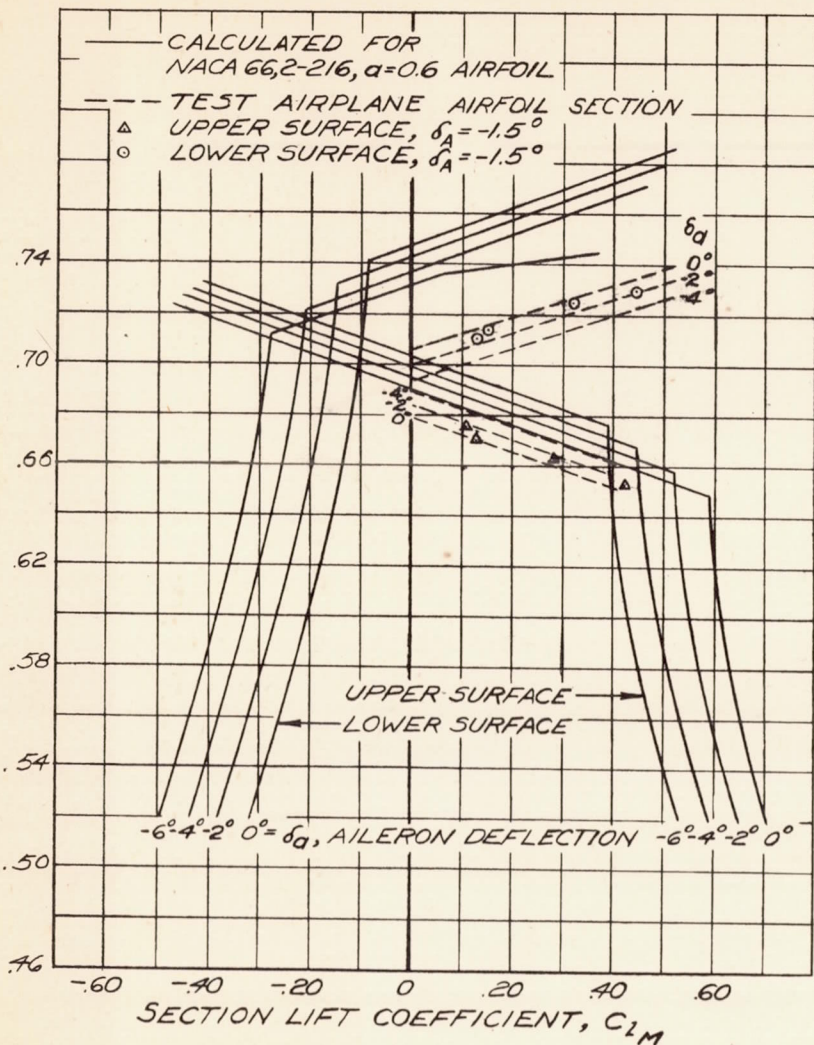 CALCULATED FOR
NACA 66,2-216, a=0.6 AIRFOIL
TEST AIRPLANE AIRFOIL SECTION
△ UPPER SURFACE, δA=-1.5°
⊙ LOWER SURFACE, δA=-1.5°
δa
0°
-2°
-4°
.74
.70
-4°
-2°
0°
.66
.62
.58
UPPER SURFACE
LOWER SURFACE
.54
-6° -4° -2° 0° = δa, AILERON DEFLECTION -6° -4° -2° 0°
.50
.46
-.60 -.40 -.20 0 .20 .40 .60
SECTION LIFT COEFFICIENT, ClM